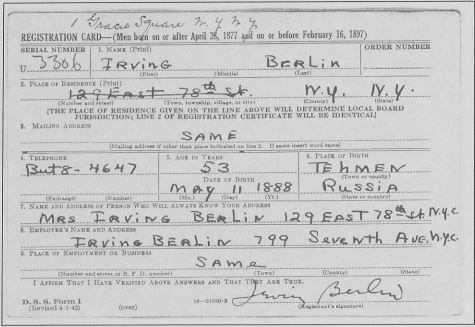 1 Gracie Square N.Y. N.Y.
REGISTRATION CARD—(Men born on or after April 28, 1877 and on or before February 16, 1897)
SERIAL NUMBER 1. NAME (Print) ORDER NUMBER
U 3306 IRVING BERLIN
(First) (Middle) (Last)
2. PLACE OF RESIDENCE (Print)
129 EAST 78th St. N.Y. N.Y.
(Number and street) (Town, township, village, or city) (County) (State)
[THE PLACE OF RESIDENCE GIVEN ON THE LINE ABOVE WILL DETERMINE LOCAL BOARD
JURISDICTION; LINE 2 OF REGISTRATION CERTIFICATE WILL BE IDENTICAL]
3. MAILING ADDRESS
SAME
(Mailing address if other than place indicated on line 2. If same insert word same)
4. TELEPHONE 5. AGE IN YEARS 6. PLACE OF BIRTH
But8-4647 53 TEHMEN
DATE OF BIRTH (Town or county)
MAY 11 1888 RUSSIA
(Exchange) (Number) (Mo.) (Day) (Yr.) (State or country)
7. NAME AND ADDRESS OF PERSON WHO WILL ALWAYS KNOW YOUR ADDRESS
MRS IRVING BERLIN 129 EAST 78th St. N.Y.C.
8. EMPLOYER'S NAME AND ADDRESS
IRVING BERLIN 799 SEVENTH AVE. N.Y.C.
9. PLACE OF EMPLOYMENT OR BUSINESS
SAME
(Number and street or R. F. D. number) (Town) (County) (State)
I AFFIRM THAT I HAVE VERIFIED ABOVE ANSWERS AND THAT THEY ARE TRUE.
Irving Berlin
D. S. S. Form 1 16—21630-2 (Registrant's signature)
(Revised 4-1-42) (over)